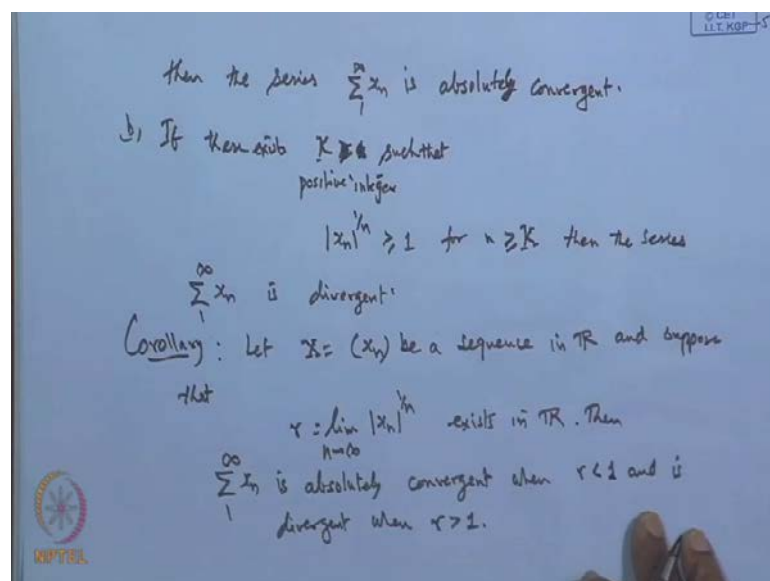 © CET
I.I.T. KGP
then the series ∑_1^∞ x_n is absolutely convergent.
b) If there exists K such that
positive integer
|x_n|^{1/n} ≥ 1 for n ≥ K then the series
∑_1^∞ x_n is divergent.
Corollary : Let X = (x_n) be a sequence in ℝ and suppose
that
r = lim_{n→∞} |x_n|^{1/n} exists in ℝ. Then
∑_1^∞ x_n is absolutely convergent when r < 1 and is
divergent when r > 1.
NPTEL